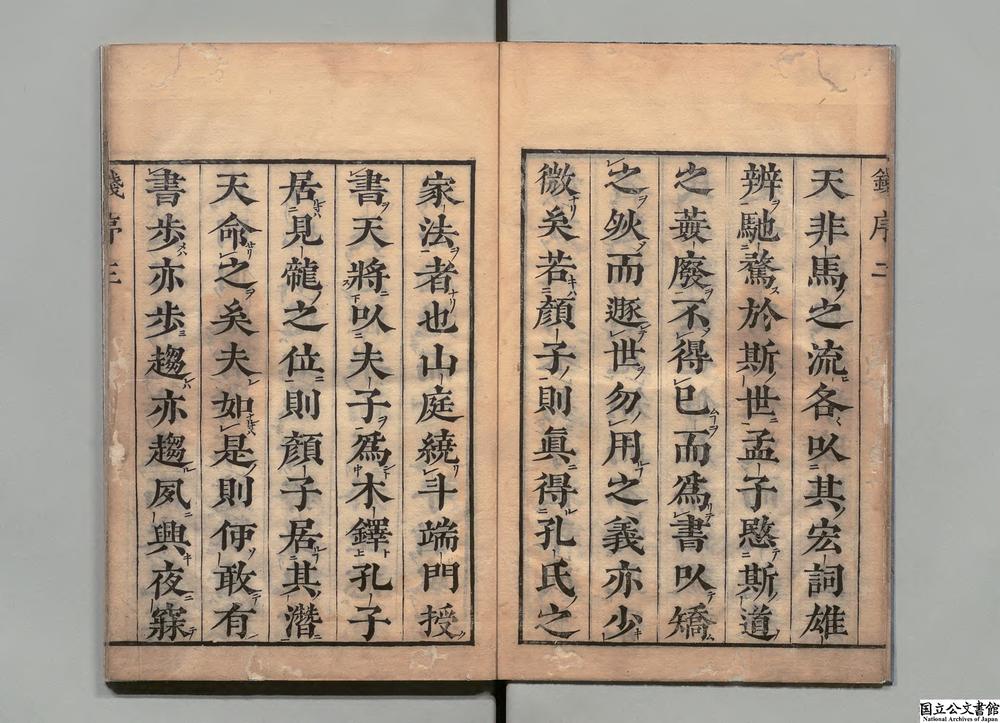 錢序 二
天非馬之流各以其宏詞雄
辨馳騖於斯世孟子愍斯道
之廢不得已而爲書以矯
之肰而遯世勿用之義亦少
微矣若顏子則眞得孔氏之
家法者也山庭繞斗端門授
書天將以夫子爲木鐸孔子
居見龍之位則顏子居其潛
天命之矣夫如是則何敢有
書步亦步趨亦趨夙興夜寐
錢序 三
国立公文書館
National Archives of Japan